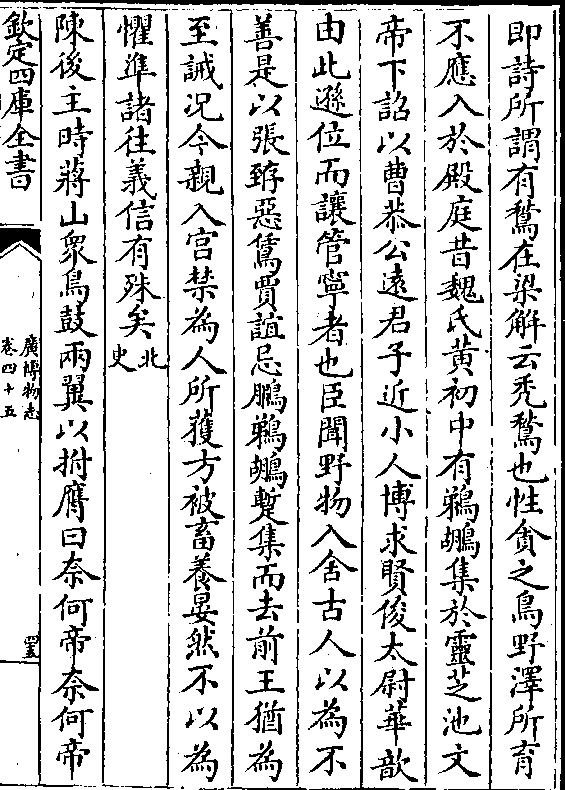 即詩所謂有鶖在梁解云秃鶖也性貪之鳥野澤所育
不應入於殿庭昔魏氏黄初中有鵜鶘集於靈芝池文
帝下詔以曹恭公遠君子近小人博求賢俊太尉華歆
由此遜位而讓管寧者也臣聞野物入舍古人以為不
善是以張臶惡鵀賈誼忌鵩鵜鶘蹔集而去前王猶為
至誡况今親入宫禁為人所獲方被畜養晏然不以為
懼準諸往義信有殊矣北史
陳後主時蔣山衆鳥鼓兩翼以拊膺曰奈何帝奈何帝
欽定四庫全書
廣博物志
卷四十五